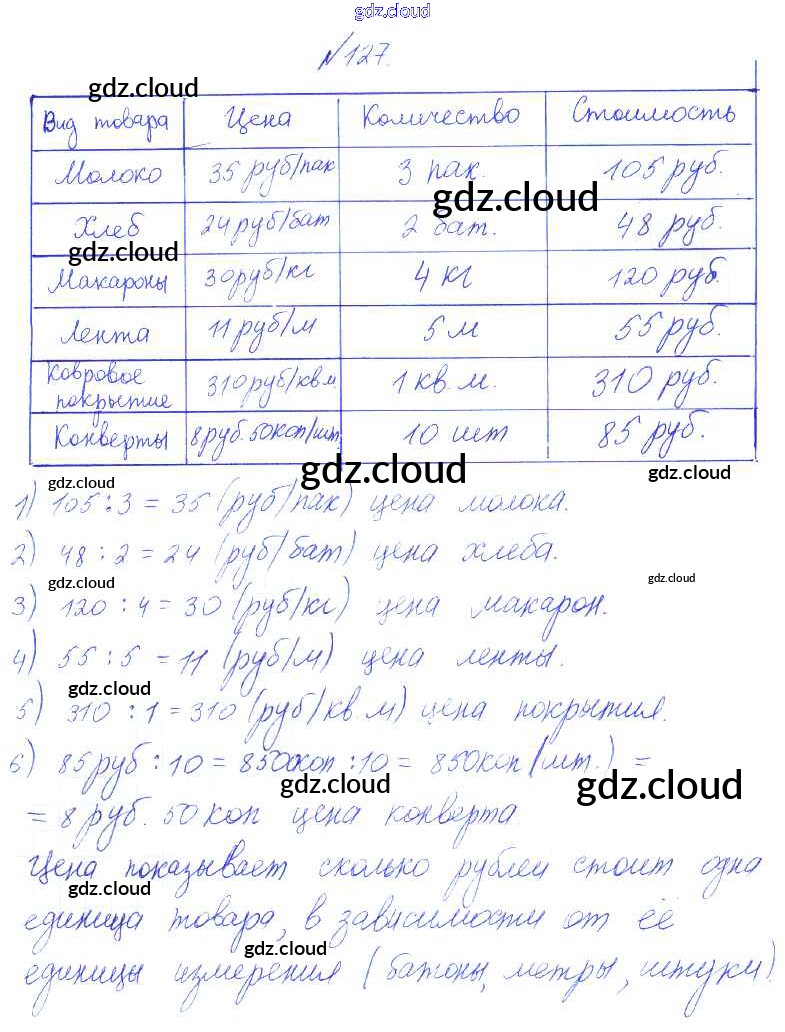 gdz.cloud
№127.
gdz.cloud
Вид товара Цена Количество Стоимость
Молоко 35 руб/пак 3 пак. 105 руб.
gdz.cloud
Хлеб 24 руб/бат 2 бат. 48 руб.
gdz.cloud
Макароны 30 руб/кг 4 кг 120 руб.
Лента 11 руб/м 5 м 55 руб.
Ковровое покрытие 310 руб/кв.м 1 кв. м. 310 руб.
Конверты 8 руб. 50 коп/шт. 10 шт 85 руб.
gdz.cloud
gdz.cloud gdz.cloud
1) 105 : 3 = 35 (руб/пак) цена молока.
2) 48 : 2 = 24 (руб/бат) цена хлеба.
gdz.cloud gdz.cloud
3) 120 : 4 = 30 (руб/кг) цена макарон.
4) 55 : 5 = 11 (руб/м) цена ленты.
gdz.cloud
5) 310 : 1 = 310 (руб/кв.м) цена покрытия.
6) 85 руб : 10 = 8500 коп : 10 = 850 коп (шт.) =
gdz.cloud gdz.cloud
= 8 руб. 50 коп цена конверта.
Цена показывает сколько рублей стоит одна
gdz.cloud
единица товара, в зависимости от её
gdz.cloud
единицы измерения (батоны, метры, штуки).